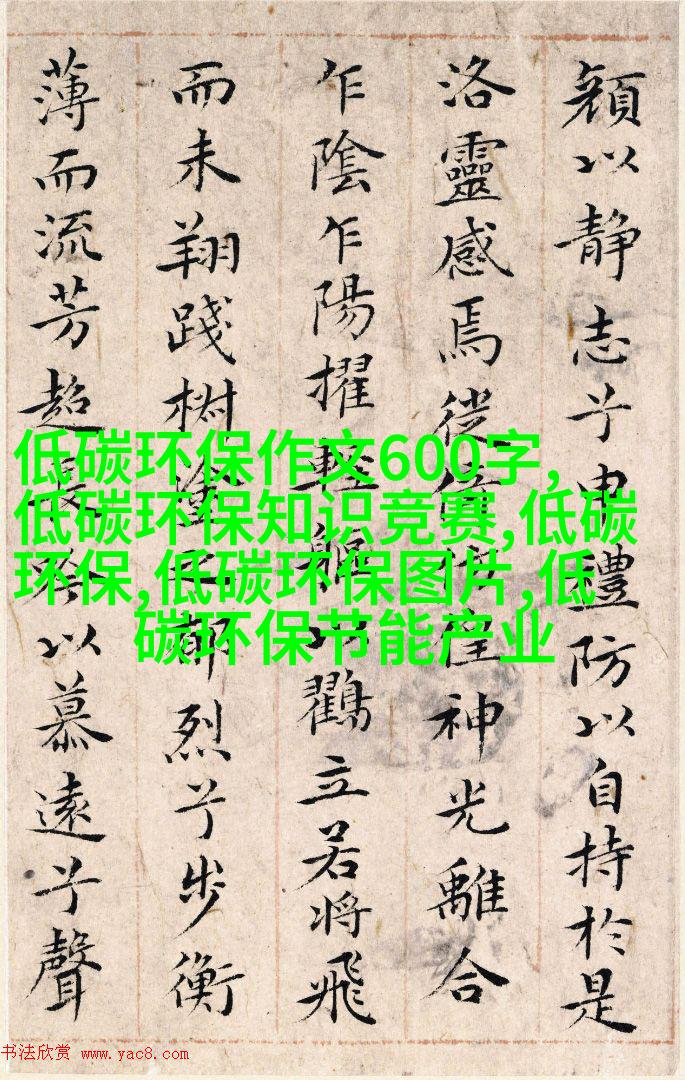 顔以靜志兮申禮防以自持於是
洛靈感焉徙倚彷徨神光離合
乍陰乍陽擢輕軀以鶴立若將飛
而未翔踐椒塗之郁烈兮步衡
薄而流芳超長吟以慕遠兮聲
低碳环保作文600字,
低碳环保知识竞赛,低碳
环保,低碳环保图片,低
碳环保节能产业
书法欣赏 www.yac8.com